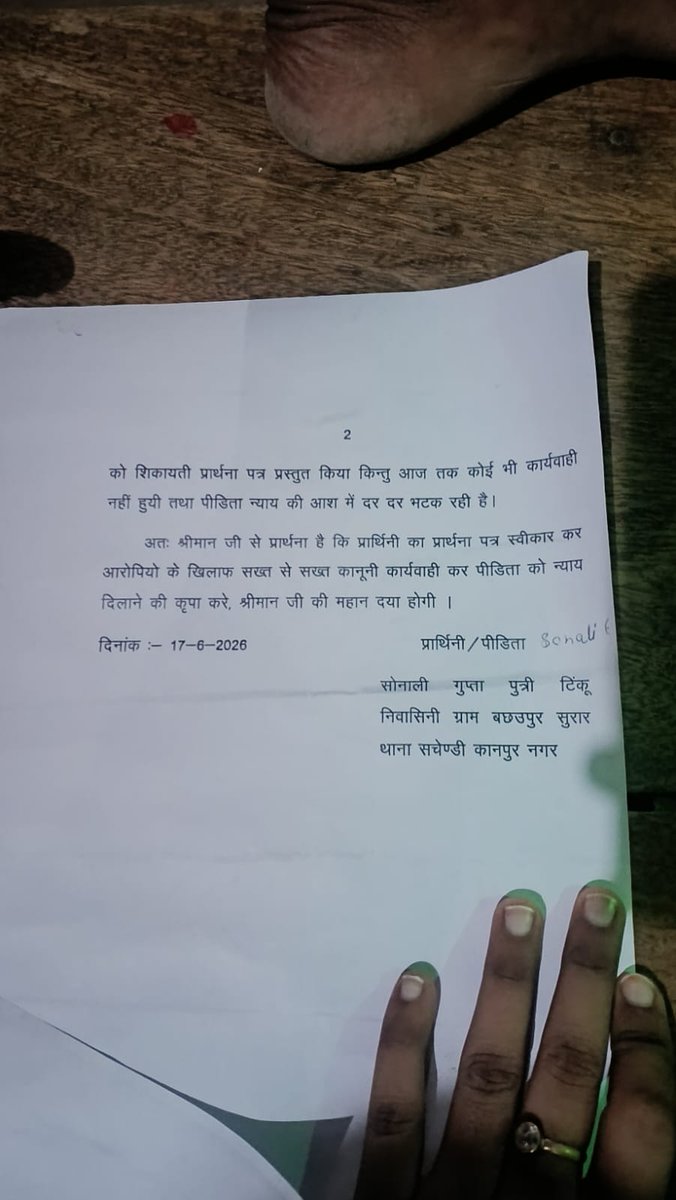 2
को शिकायती प्रार्थना पत्र प्रस्तुत किया किन्तु आज तक कोई भी कार्यवाही
नहीं हुयी तथा पीडिता न्याय की आश में दर दर भटक रही है।
अतः श्रीमान जी से प्रार्थना है कि प्रार्थिनी का प्रार्थना पत्र स्वीकार कर
आरोपियो के खिलाफ सख्त से सख्त कानूनी कार्यवाही कर पीडिता को न्याय
दिलाने की कृपा करे, श्रीमान जी की महान दया होगी ।
दिनांक :– 17–6–2026 प्रार्थिनी/पीडिता Sonali
सोनाली गुप्ता पुत्री टिंकू
निवासिनी ग्राम बछउपुर सुरार
थाना सचेण्डी कानपुर नगर